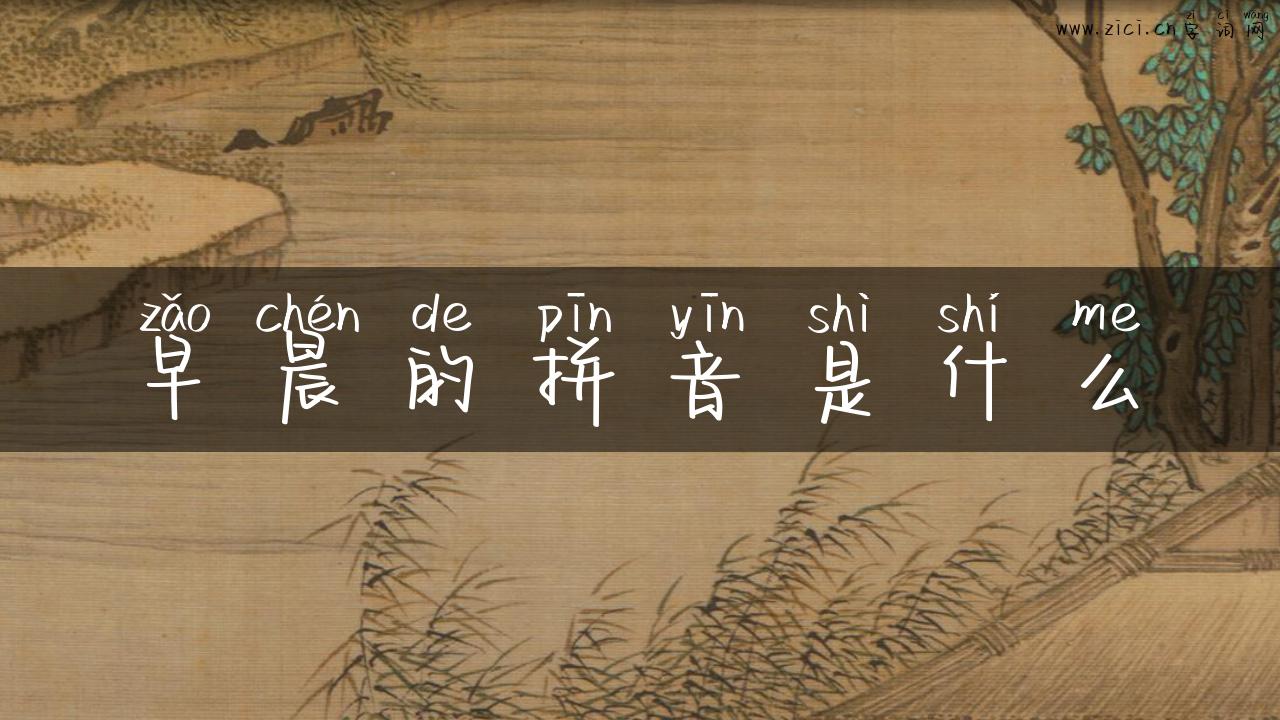 zì cí wǎng
www.zici.cn字词网
zǎo chén de pīn yīn shì shí me
早晨的拼音是什么